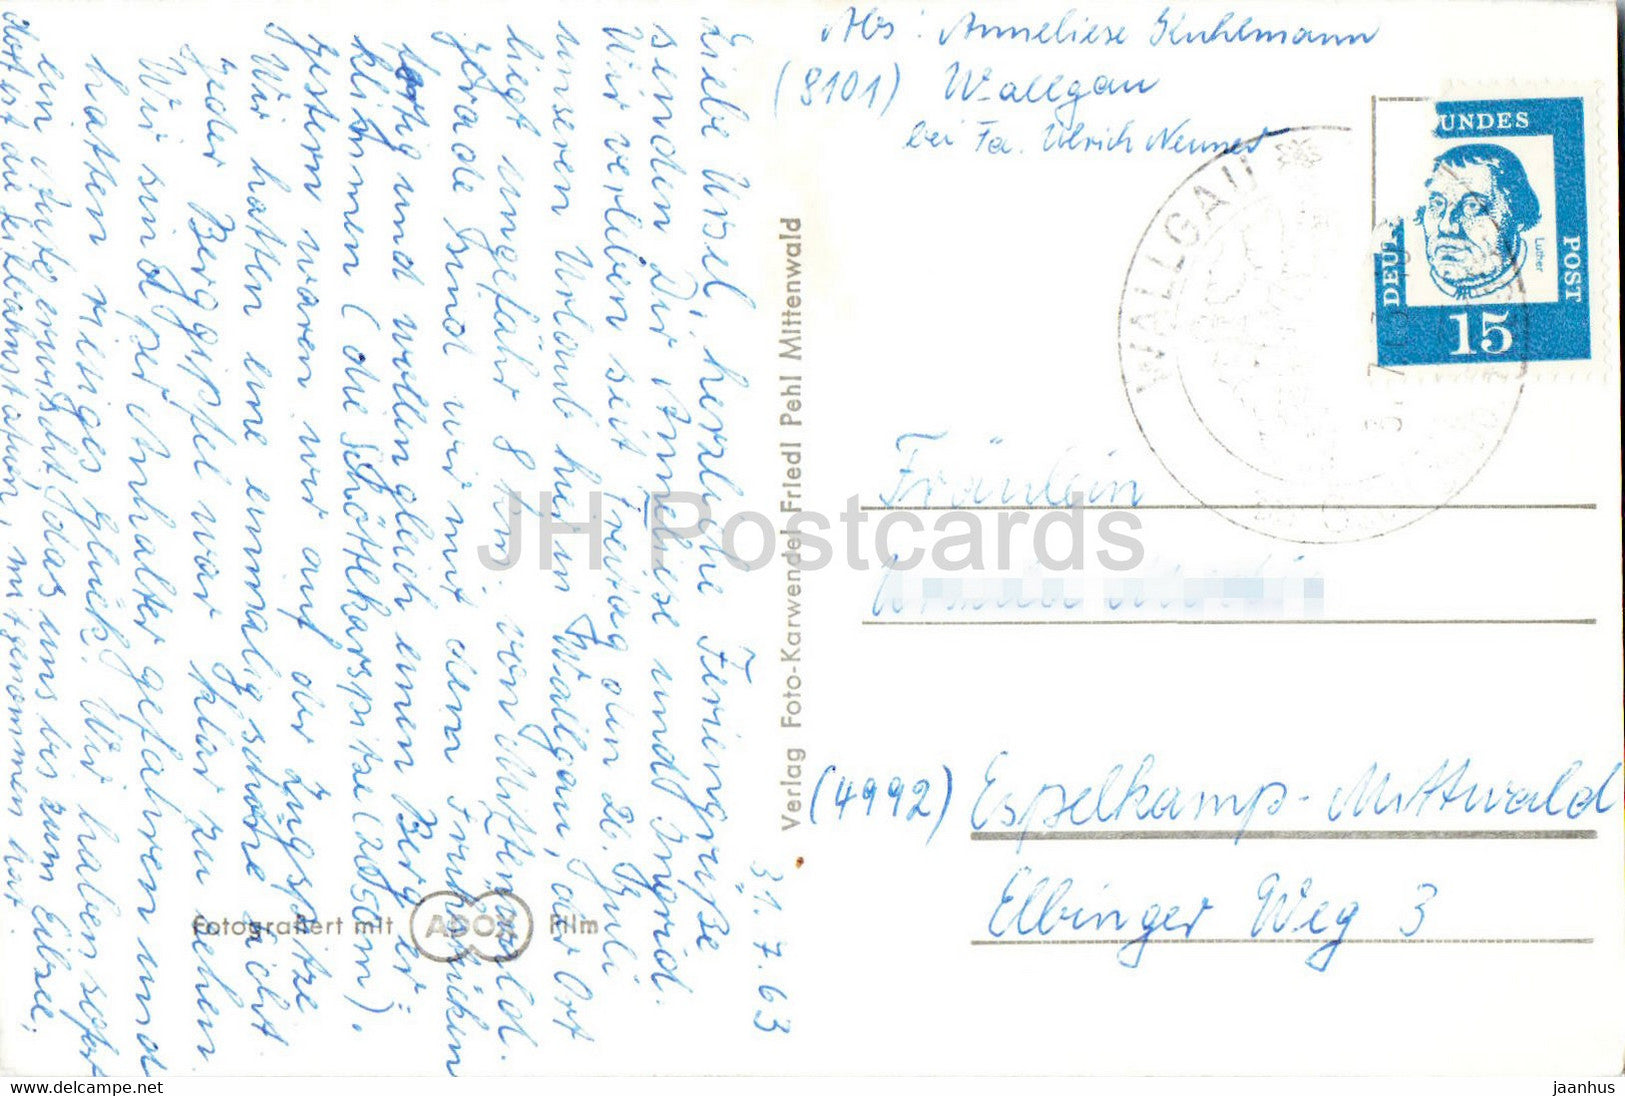 Abs: Anneliese Kuhlmann
(8101) Wallgau
bei Fa. Ulrich Neuner
DEUTSCHE BUNDESPOST
Luther
15
WALLGAU
31. 7. 63
Liebe Ursel, herzliche Feriengrüße
senden Dir Anneliese und Ingrid.
Wir verleben seit Freitag den 26. Juli
unseren Urlaub hier in Wallgau, der Ort
liegt ungefähr 8 km. von Mittenwald.
Gerade sind wir mit dem Frühstücken
fertig und wollen gleich einen Berg er=
klimmen (die Schöttelkarspitze (2050m).
Gestern waren wir auf der Zugspitze
Wir hatten eine einmalig schöne Sicht
jeder Berggipfel war klar zu sehen.
Wir sind per Anhalter gefahren und
hatten riesiges Glück. Wir haben sofort
ein Auto erwischt, das uns bis zum Eibsee,
dort ist die Seilbahnstation, mitgenommen hat.
Verlag Foto-Karwendel Friedl Pehl Mittenwald
Fotografiert mit ADOX Film
Fräulein
(4992) Espelkamp-Mittwald
Elbinger Weg 3
JH Postcards
www.delcampe.net
jaanhus